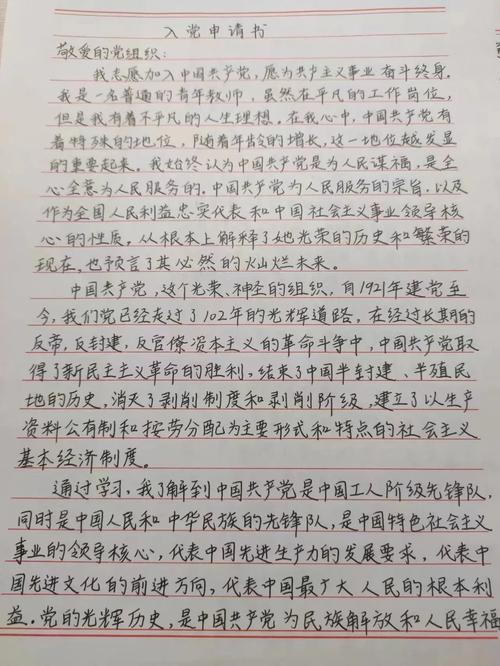 入党申请书
敬爱的党组织:
我志愿加入中国共产党,愿为共产主义事业奋斗终身。
我是一名普通的青年教师,虽然在平凡的工作岗位,
但是我有着不平凡的人生理想。在我心中,中国共产党有
着特殊的地位,随着年龄的增长,这一地位越发显
的重要起来。我始终认为中国共产党是为人民谋福,是全
心全意为人民服务的。中国共产党为人民服务的宗旨,以及
作为全国人民利益忠实代表和中国社会主义事业领导核
心的性质,从根本上解释了她光荣的历史和繁荣的
现在,也预言了其必然的灿烂未来。
中国共产党,这个光荣、神圣的组织,自1921年建党至
今,我们党已经走过了102年的光辉道路,在经过长期的
反帝,反封建,反官僚资本主义的革命斗争中,中国共产党取
得了新民主主义革命的胜利,结束了中国半封建、半殖民
地的历史,消灭了剥削制度和剥削阶级,建立了以生产
资料公有制和按劳分配为主要形式和特点的社会主义
基本经济制度。
通过学习,我了解到中国共产党是中国工人阶级先锋队,
同时是中国人民和中华民族的先锋队,是中国特色社会主义
事业的领导核心,代表中国先进生产力的发展要求,代表中
国先进文化的前进方向,代表中国最广大人民的根本利
益。党的光辉历史,是中国共产党为民族解放和人民幸福